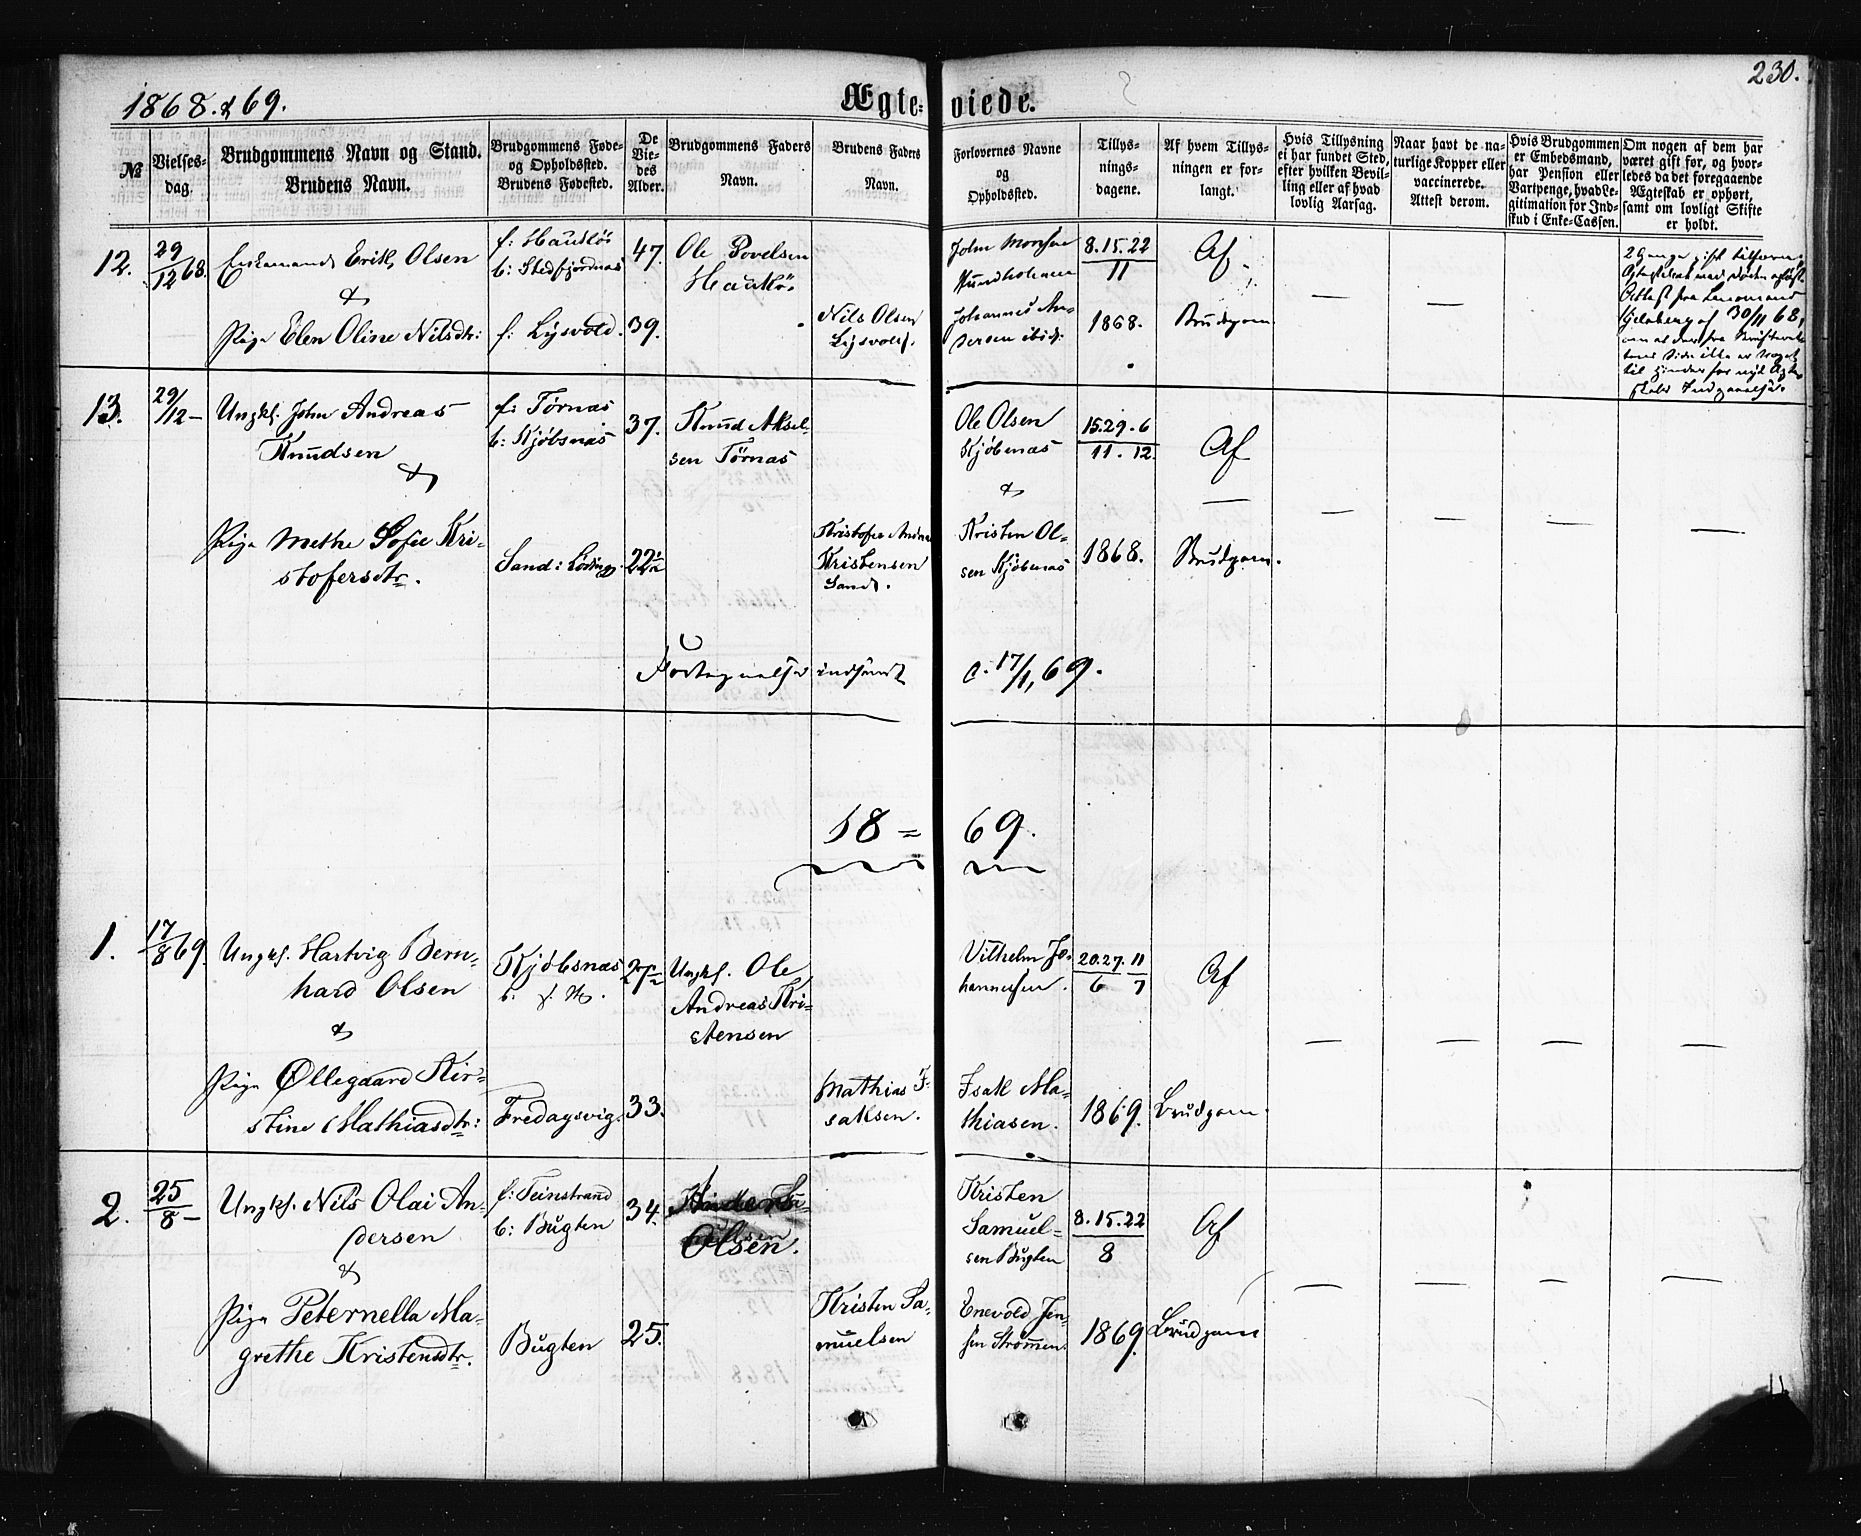 230.
1868. & 69.
Ægteviede.
№
Vielses-
dag.
Brudgommens Navn og Stand.
Brudens Navn.
Brudgommens Føde-
og Opholdssted.
Brudens Fødested.
De
Vie-
des
Alder.
Brudgommens Faders
Navn.
Brudens Faders
Navn.
Forlovernes Navne
og
Opholdssted.
Tillys-
nings-
dagene.
Af hvem Tillys-
ningen er for-
langt.
Hvis Tillysning
ei har fundet Sted,
efter hvilken Bevil-
ling eller af hvad
lovlig Aarsag.
Naar havt de na-
turlige Kopper eller
vaccinerede.
Attest derom.
Hvis Brudgommen
er Embedsmand,
har Pension eller
Vartpenge, hvad Le-
gitimation for Ind-
skud i Enke-Cassen.
Om nogen af dem har
været gift før, og hvor-
ledes da det foregaaende
Ægteskab er ophørt,
samt om lovligt Skifte
er holdt.
12.
29/12 68.
Enkemand Erik Olsen
&
Pige Elen Oline Nilsdtr:
f: Haukløs
b: Stedfjordnæs
f: Lysvold.
47.
39.
Ole Povelsen
Nils Olsen
Lysvold.
John Monsen
Johannes An-
dersen ibid:
8.15.22
11
1868.
Af
Brudgom
2 Gange gift tilforn
30/11 68,
13.
29/12 —
Ungkl. John Andreas
Knudsen
&
Pige Methe Sofie Kri-
stofersdtr.
f: Tørnæs
b: Kjøbsnæs
Sand: Lødding
37.
22½
Knud Aksel-
sen Tørnæs
Kristofer Andreas
Kristensen
Sand.
Ole Olsen
Kjøbsnæs
&
Kristen Ol-
sen Kjøbsnæs
15.29.6
11. 12.
1868.
Af
Brudgom.
Fortegnelse indsendt d. 17/1, 69.
18 = 69.
1.
17/8 69.
Ungkl. Hartvig Bern-
hard Olsen
&
Pige Øllegaard Kir-
stine Mathiasdtr:
Kjøbsnæs
b. f. m.
Fredagsvig.
27½
33.
Ungkl. Ole
Andreas Kri-
stensen
Mathias I-
saksen.
Vilhelm Jo-
hannesen.
Isak Ma-
thiasen.
20.27. 11
6 7
1869.
Af
Brudgom.
2.
25/8 —
Ungkl. Nils Olai An-
dersen
&
Pige Peternella Ma-
grethe Kristensdtr.
f: Teinstrand
b: Bugten
Bugten
34.
25.
Anders
Olsen.
Kristen Sa-
muelsen
Kristen
Samuel-
sen Bugten
Enevold Jen-
sen Strømmen.
8.15.22
8
1869.
Af
Brudgom